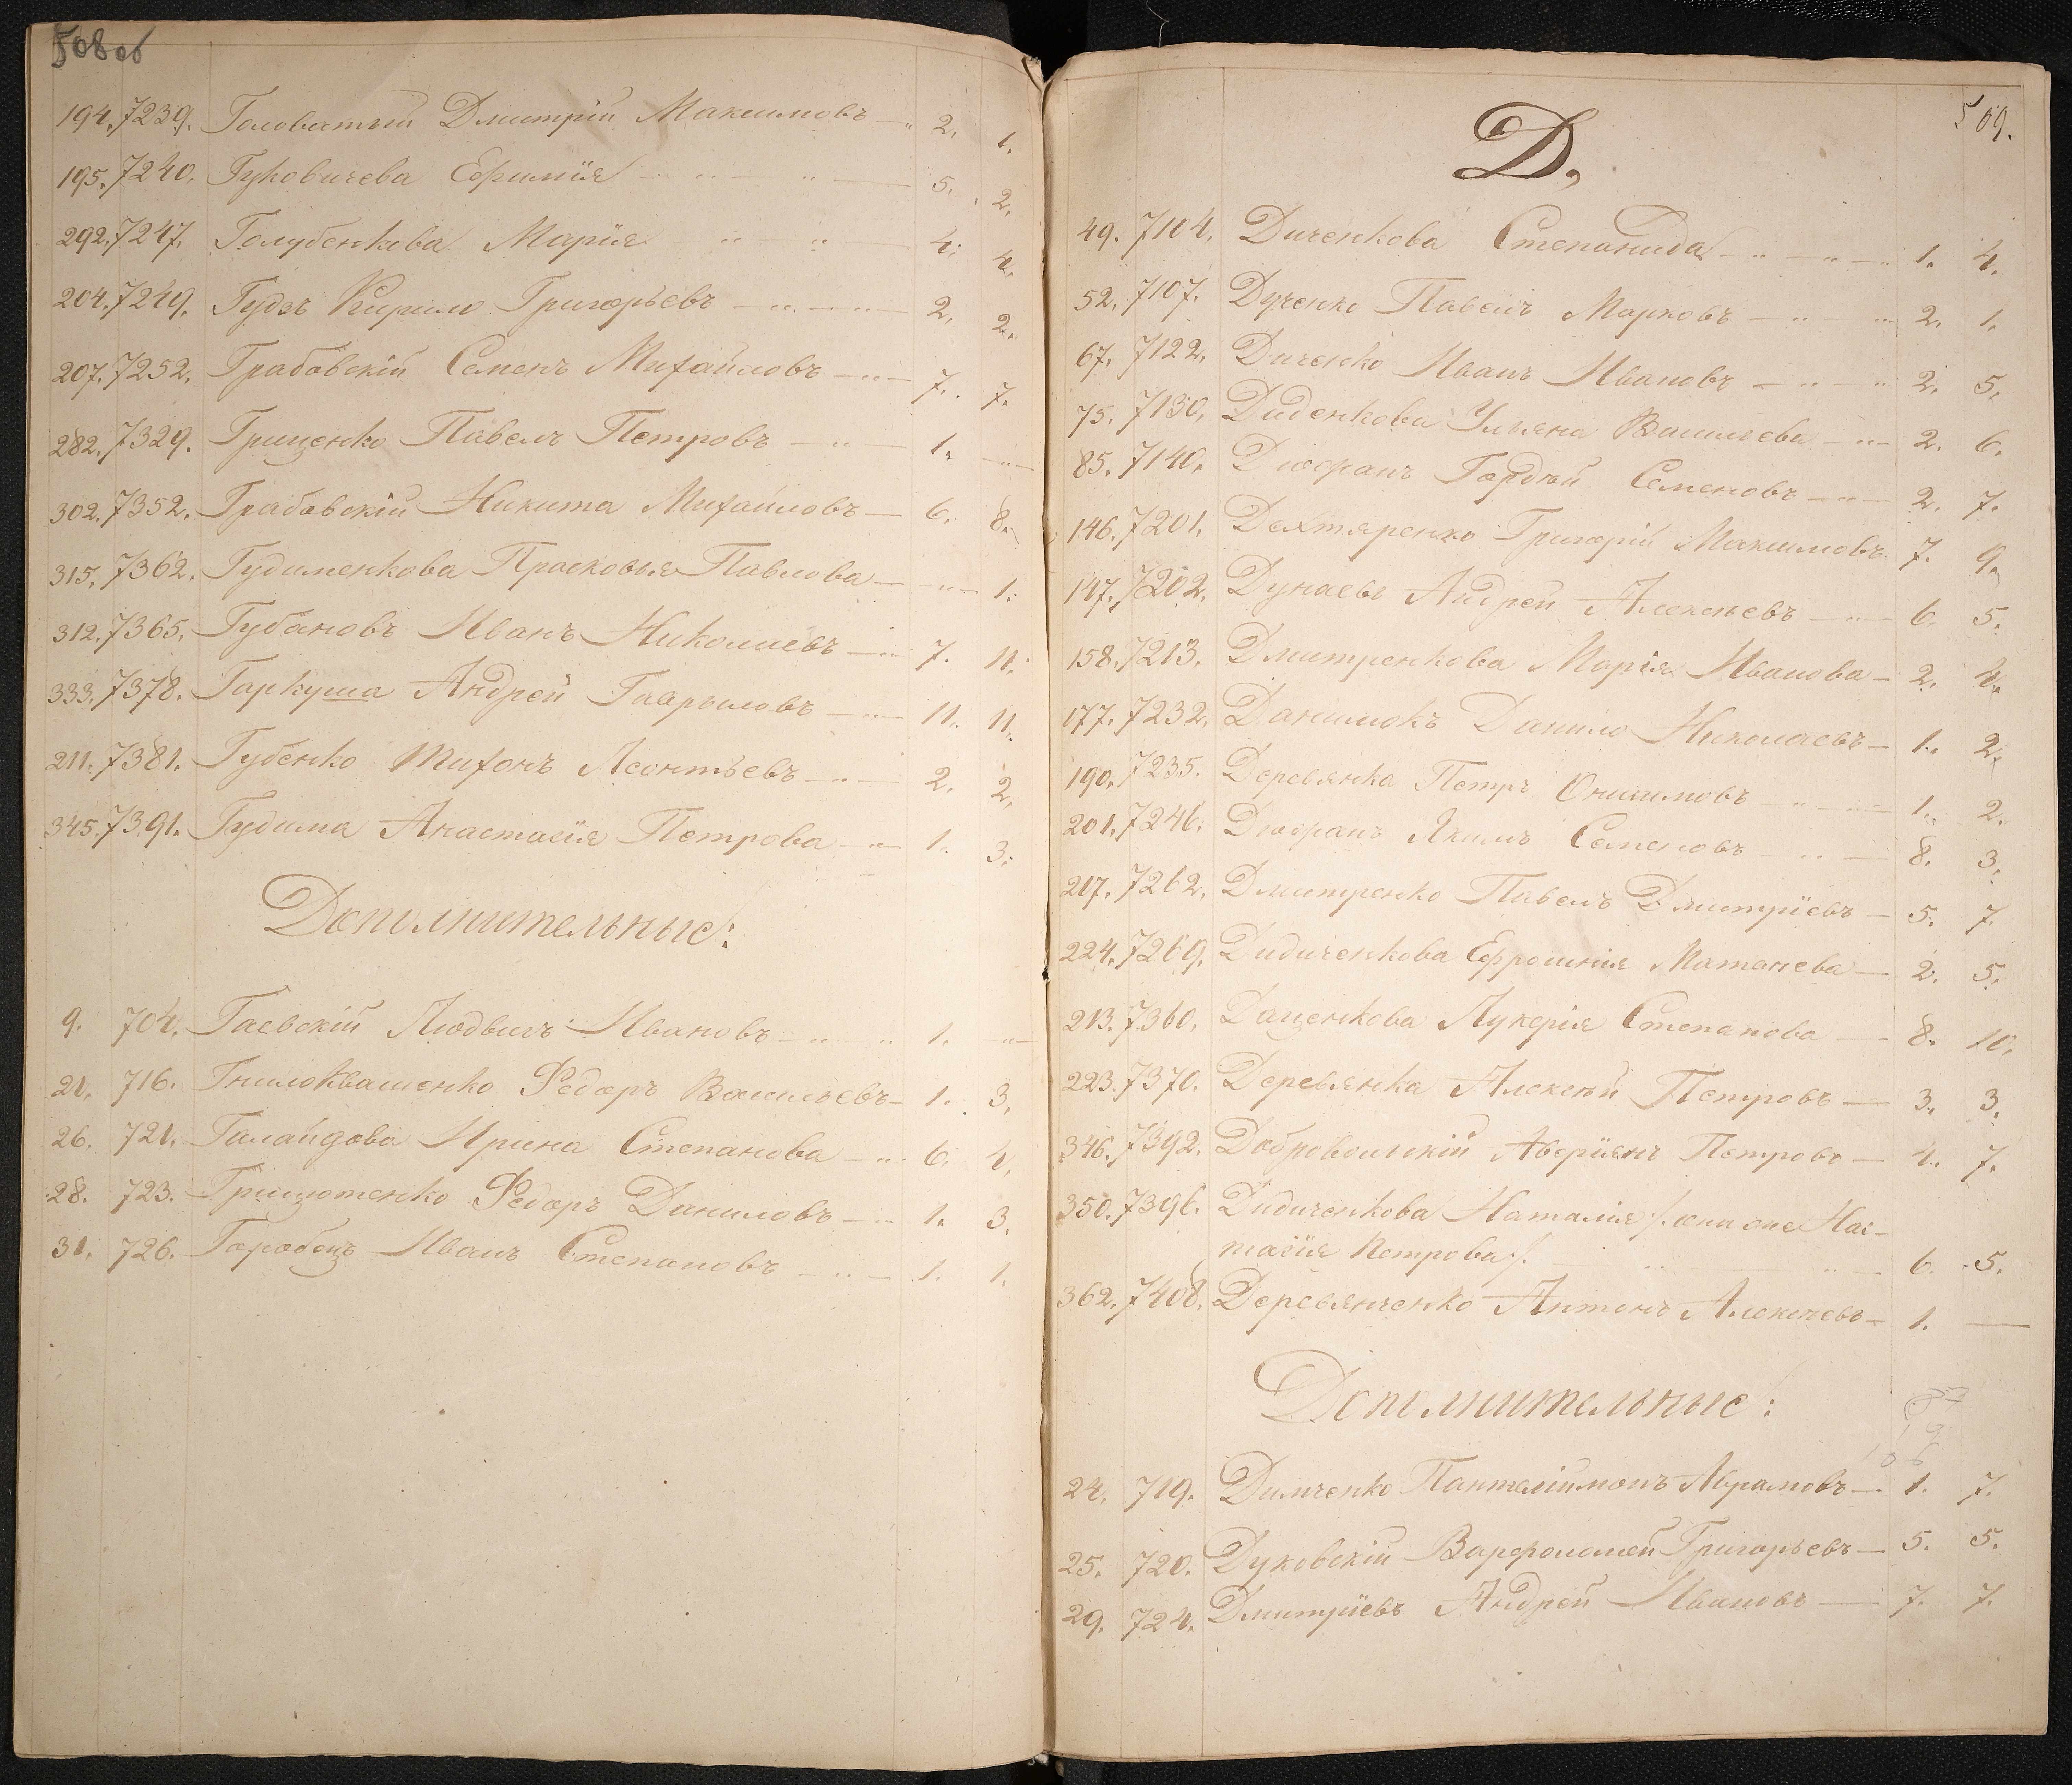 508об
194. 7239. Головатый Дмитрій Максимовъ — „ 2. 1.
195. 7240. Гуковичева Ефимія — „ — „ — 5. 2.
292. 7247. Голубенкова Марія „ „ — 4. 4.
204. 7249. Гудзъ Кирило Григорьевъ — „ — „ — 2. 2.
207. 7252. Грабовскій Семенъ Михайловъ — „ — 7. 7.
282. 7329. Гриценко Павелъ Петровъ — „ — 1. — „ —
302. 7352. Грабовскій Никита Михайловъ — 6. 8.
315. 7362. Гудименкова Прасковья Павлова — — „ — 1.
312. 7365. Губановъ Иванъ Николаевъ — „ — 7. 11.
333. 7378. Гаркуша Андрей Гавриловъ — „ — 11. 11.
211. 7381. Губенко Тихонъ Леонтьевъ — „ — 2. 2.
345. 7391. Гудима Анастасія Петрова — „ — 1. 3.
Дополнительные:
9. 704. Гаевскій Людвигъ Ивановъ — „ — „ 1. — „ —
21. 716. Гнилоквашенко Федоръ Васильевъ — 1. 3.
26. 721. Галайдова Ирина Степанова — „ 6. 4.
28. 723. Федоръ Даниловъ — „ 1. 3.
31. 726. Горобецъ Иванъ Степановъ — „ — 1. 1.
509.
Д.
49. 7104. Диченкова Степанида — „ — „ — „ 1. 4.
52. 7107. Дученко Павелъ Марковъ — „ — „ 2. 1.
67. 7122. Диченко Иванъ Ивановъ — „ — „ 2. 5.
75. 7130. Диденкова Ульяна Васильева — „ — 2. 6.
85. 7140. Гордѣй Семеновъ — „ — 2. 7.
146. 7201. Дехтяренко Григорій Максимовъ 7. 9.
147. 7202. Дунаевъ Андрей Алексѣевъ — „ — 6. 5.
158. 7213. Дмитренкова Марія Иванова — 2. 4.
177. 7232. Данилюкъ Данило Николаевъ — 1. 2.
190. 7235. Деревянка Петръ Онисимовъ — „ — „ — 1. 2.
201. 7246. Якимъ Семеновъ — „ — 8. 3.
217. 7262. Дмитренко Павелъ Дмитріевъ — 5. 7.
224. 7269. Дидиченкова Ефросинія Матвѣева — 2. 5.
213. 7360. Даценкова Лукерія Степанова — 8. 10.
223. 7370. Деревянка Алексѣй Петровъ — 3. 3.
346. 7392. Добровольскій Аверіянъ Петровъ — 4. 7.
350. 7396. Дидиченкова Наталія /: она же Нас-
тасія Петрова /: „ — „ — 6. 5.
362. 7408. Деревянченко Антонъ Алексѣевъ — 1. —
Дополнительные:
24. 719. Димченко Пантелімонъ Абрамовъ — 1. 7.
25. 720. Дуковскій Варфоломей Григорьевъ — 5. 5.
29. 724. Дмитріевъ Андрей Ивановъ — 7. 7.